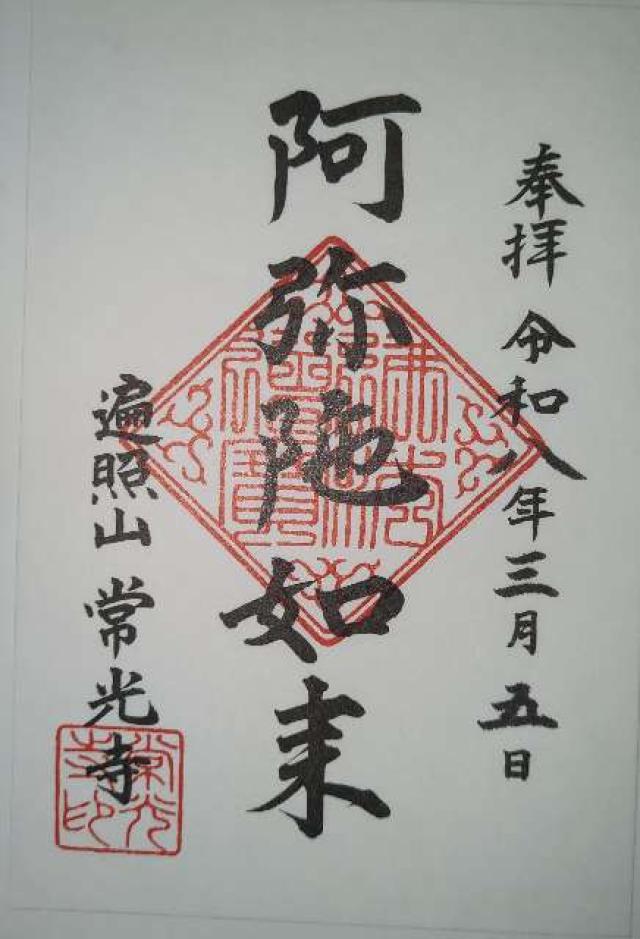 奉拝 令和八年三月五日
阿弥陀如来
遍照山 常光寺
常光寺印